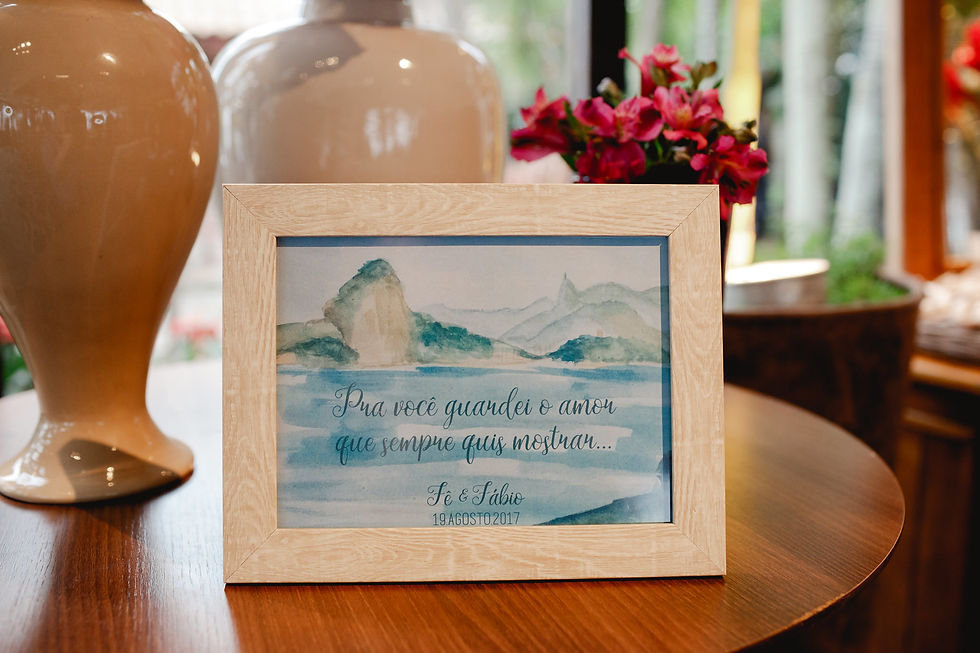 Pra você guardei o amor
que sempre quis mostrar...
Fê & Fábio
19.AGOSTO.2017